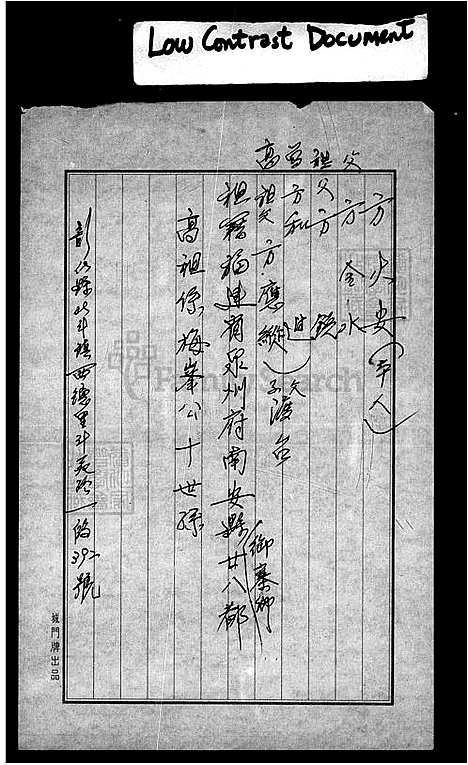 Low Contrast Document
方火安（本人）
父方金水
祖父方
曾方和
高祖父方應縱
父子渡台
祖籍福建省泉州府南安縣廿八都
御寨鄉
高祖係梅峯公十世孫
彰化縣北斗鎮西德里斗苑路一段392號
城門牌出品
FamilySearch